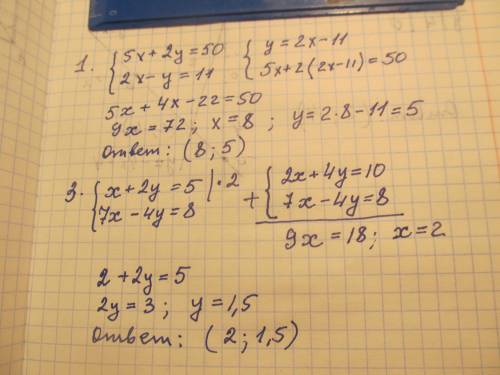 1. { 5x + 2y = 50   { y = 2x - 11
{ 2x - y = 11   { 5x + 2(2x - 11) = 50
5x + 4x - 22 = 50
9x = 72; x = 8; y = 2·8 - 11 = 5
Ответ: (8; 5)
3. { x + 2y = 5 |·2   + { 2x + 4y = 10
{ 7x - 4y = 8   { 7x - 4y = 8
9x = 18; x = 2
2 + 2y = 5
2y = 3; y = 1,5
Ответ: (2; 1,5)